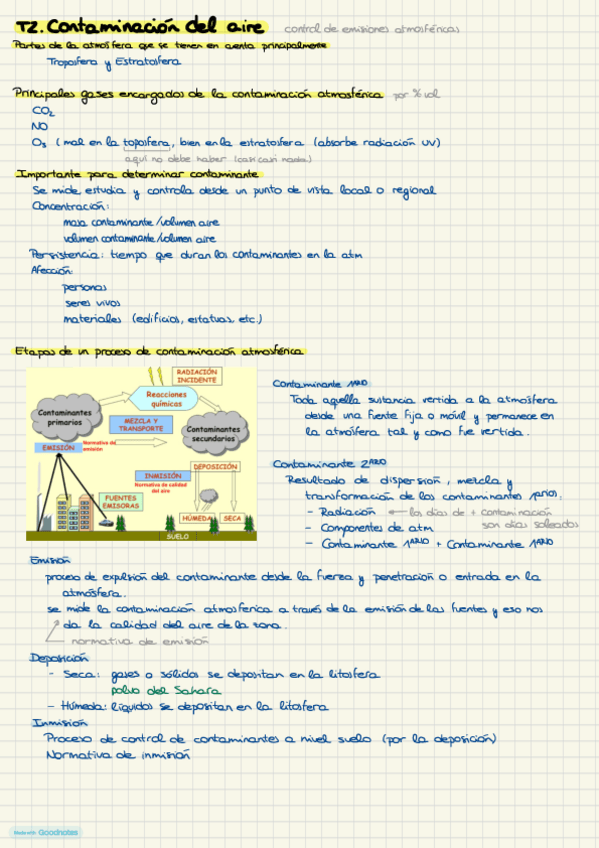 T2. Contaminación del aire control de emisiones atmosféricas
Partes de la atmósfera que se tienen en cuenta principalmente
Troposfera y Estratosfera
Principales gases encargados de la contaminación atmosférica por % vol
CO2
NO
O3 (mal en la toposfera, bien en la estratosfera (absorbe radiación UV)
aquí no debe haber (casi casi nada)
Importante para determinar contaminante
Se mide, estudia y controla desde un punto de vista local o regional
Concentración:
masa contaminante/volumen aire
volumen contaminante/volumen aire
Persistencia: tiempo que duran los contaminantes en la atm
Afección:
personas
seres vivos
materiales (edificios, estatuas, etc.)
Etapas de un proceso de contaminación atmosférica
RADIACIÓN INCIDENTE
Reacciones químicas
Contaminantes primarios
MEZCLA Y TRANSPORTE
Contaminantes secundarios
EMISIÓN
Normativa de emisión
DEPOSICIÓN
INMISIÓN
Normativa de calidad del aire
FUENTES EMISORAS
HÚMEDA
SECA
SUELO
Contaminante 1ARIO
Toda aquella sustancia vertida a la atmósfera
desde una fuente fija o móvil y permanece en
la atmósfera tal y como fue vertida.
Contaminante 2ARIO
Resultado de dispersión, mezcla y
transformación de los contaminantes 1arios:
- Radiación ← los días de + contaminación
son días soleados
- Componentes de atm
- Contaminante 1ARIO + Contaminante 1ARIO
Emisión
proceso de expulsión del contaminante desde la fuerza y penetración o entrada en la
atmósfera.
se mide la contaminación atmosférica a través de la emisión de las fuentes y eso nos
da la calidad del aire de la zona.
normativa de emisión
Deposición
- Seca: gases o sólidos se depositan en la litosfera
polvo del Sahara
- Húmeda: líquidos se depositan en la litosfera
Inmisión
Proceso de control de contaminantes a nivel suelo (por la deposición)
Normativa de inmisión
Made with Goodnotes